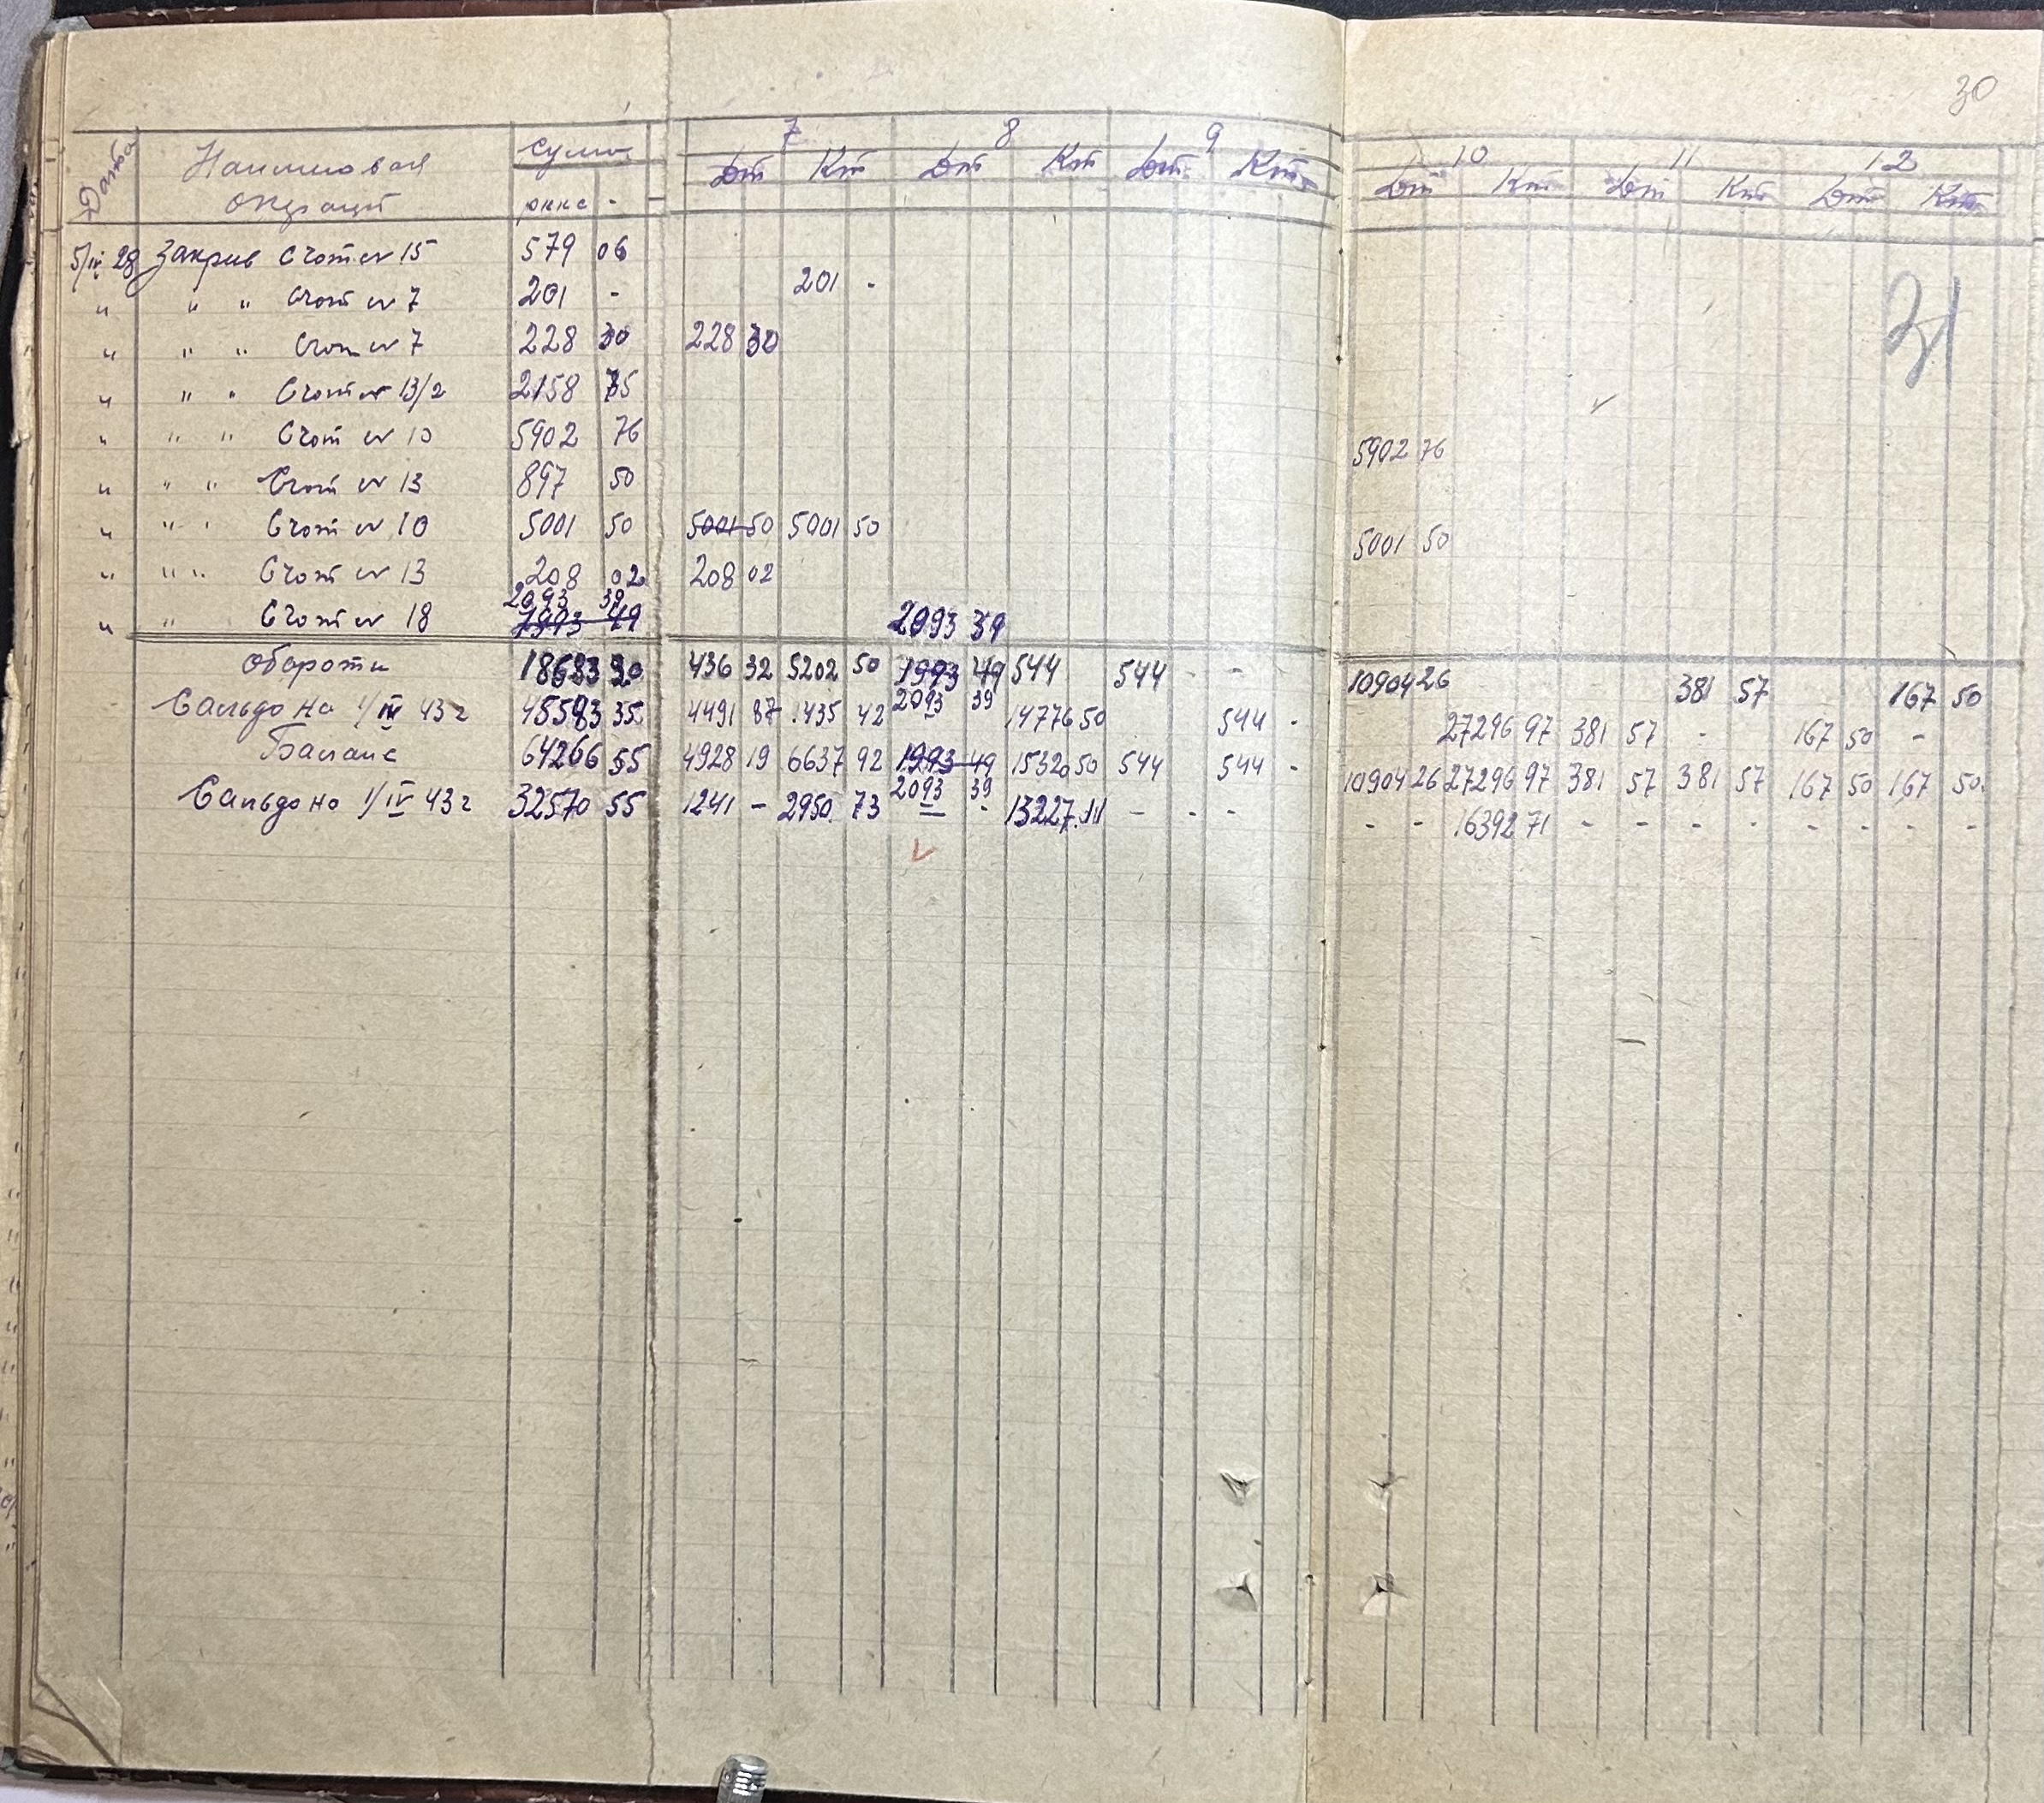 30
31
Дата Наименован Сума 7 8 9 10 11 12
операций Дт Кт Дт Кт Дт Кт Дт Кт Дт Кт Дт Кт
5/IV 28 Закрив Счот № 15 579 06
" " " Счот № 7 201 - 201 -
" " " Счот № 7 228 30 228 30
" " " Счот № 13/2 2158 75
" " " Счот № 10 5902 76 5902 76
" " " Счот № 13 897 50
" " " Счот № 10 5001 50 5001 50 5001 50 5001 50
" " " Счот № 13 208 02 208 02
2093 39
" " Счот № 18 1993 49 2093 39
Обороти 18683 20 436 32 5202 50 1993 49 544 544 - - 10904 26 381 57 167 50
2093 39
Сальдо на 1/III 43 г 45583 35 4491 87 1435 42 14776 50 544 - 27296 97 381 57 - - 167 50 -
Баланс 64266 55 4928 19 6637 92 1993 49 15320 50 544 544 - 10904 26 27296 97 381 57 381 57 167 50 167 50
2093 39
Сальдо на 1/IV 43 г 32570 55 1241 - 2950 73 - - 13227.11 - - - - - 16392 71 - - - - - - - -